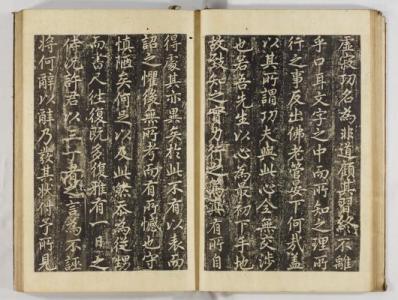 虛寂功名為非道顧其終不離
乎口耳文字之中而所知之理所
行之事反出佛老管晏下何哉蓋
以其所謂功夫與此心全無交涉
也若吾先生以心為最初下手地
故致知之實力行之為無有所自
得處其亦異矣於此不有以表而
詔之懼後無所考而有所憾也守
慎陋矣何足以及此然忝為從甥
而書人往復既多復雅有一日之
况許君以丁言為不誣
將何辭以辭乃其狀付予所見